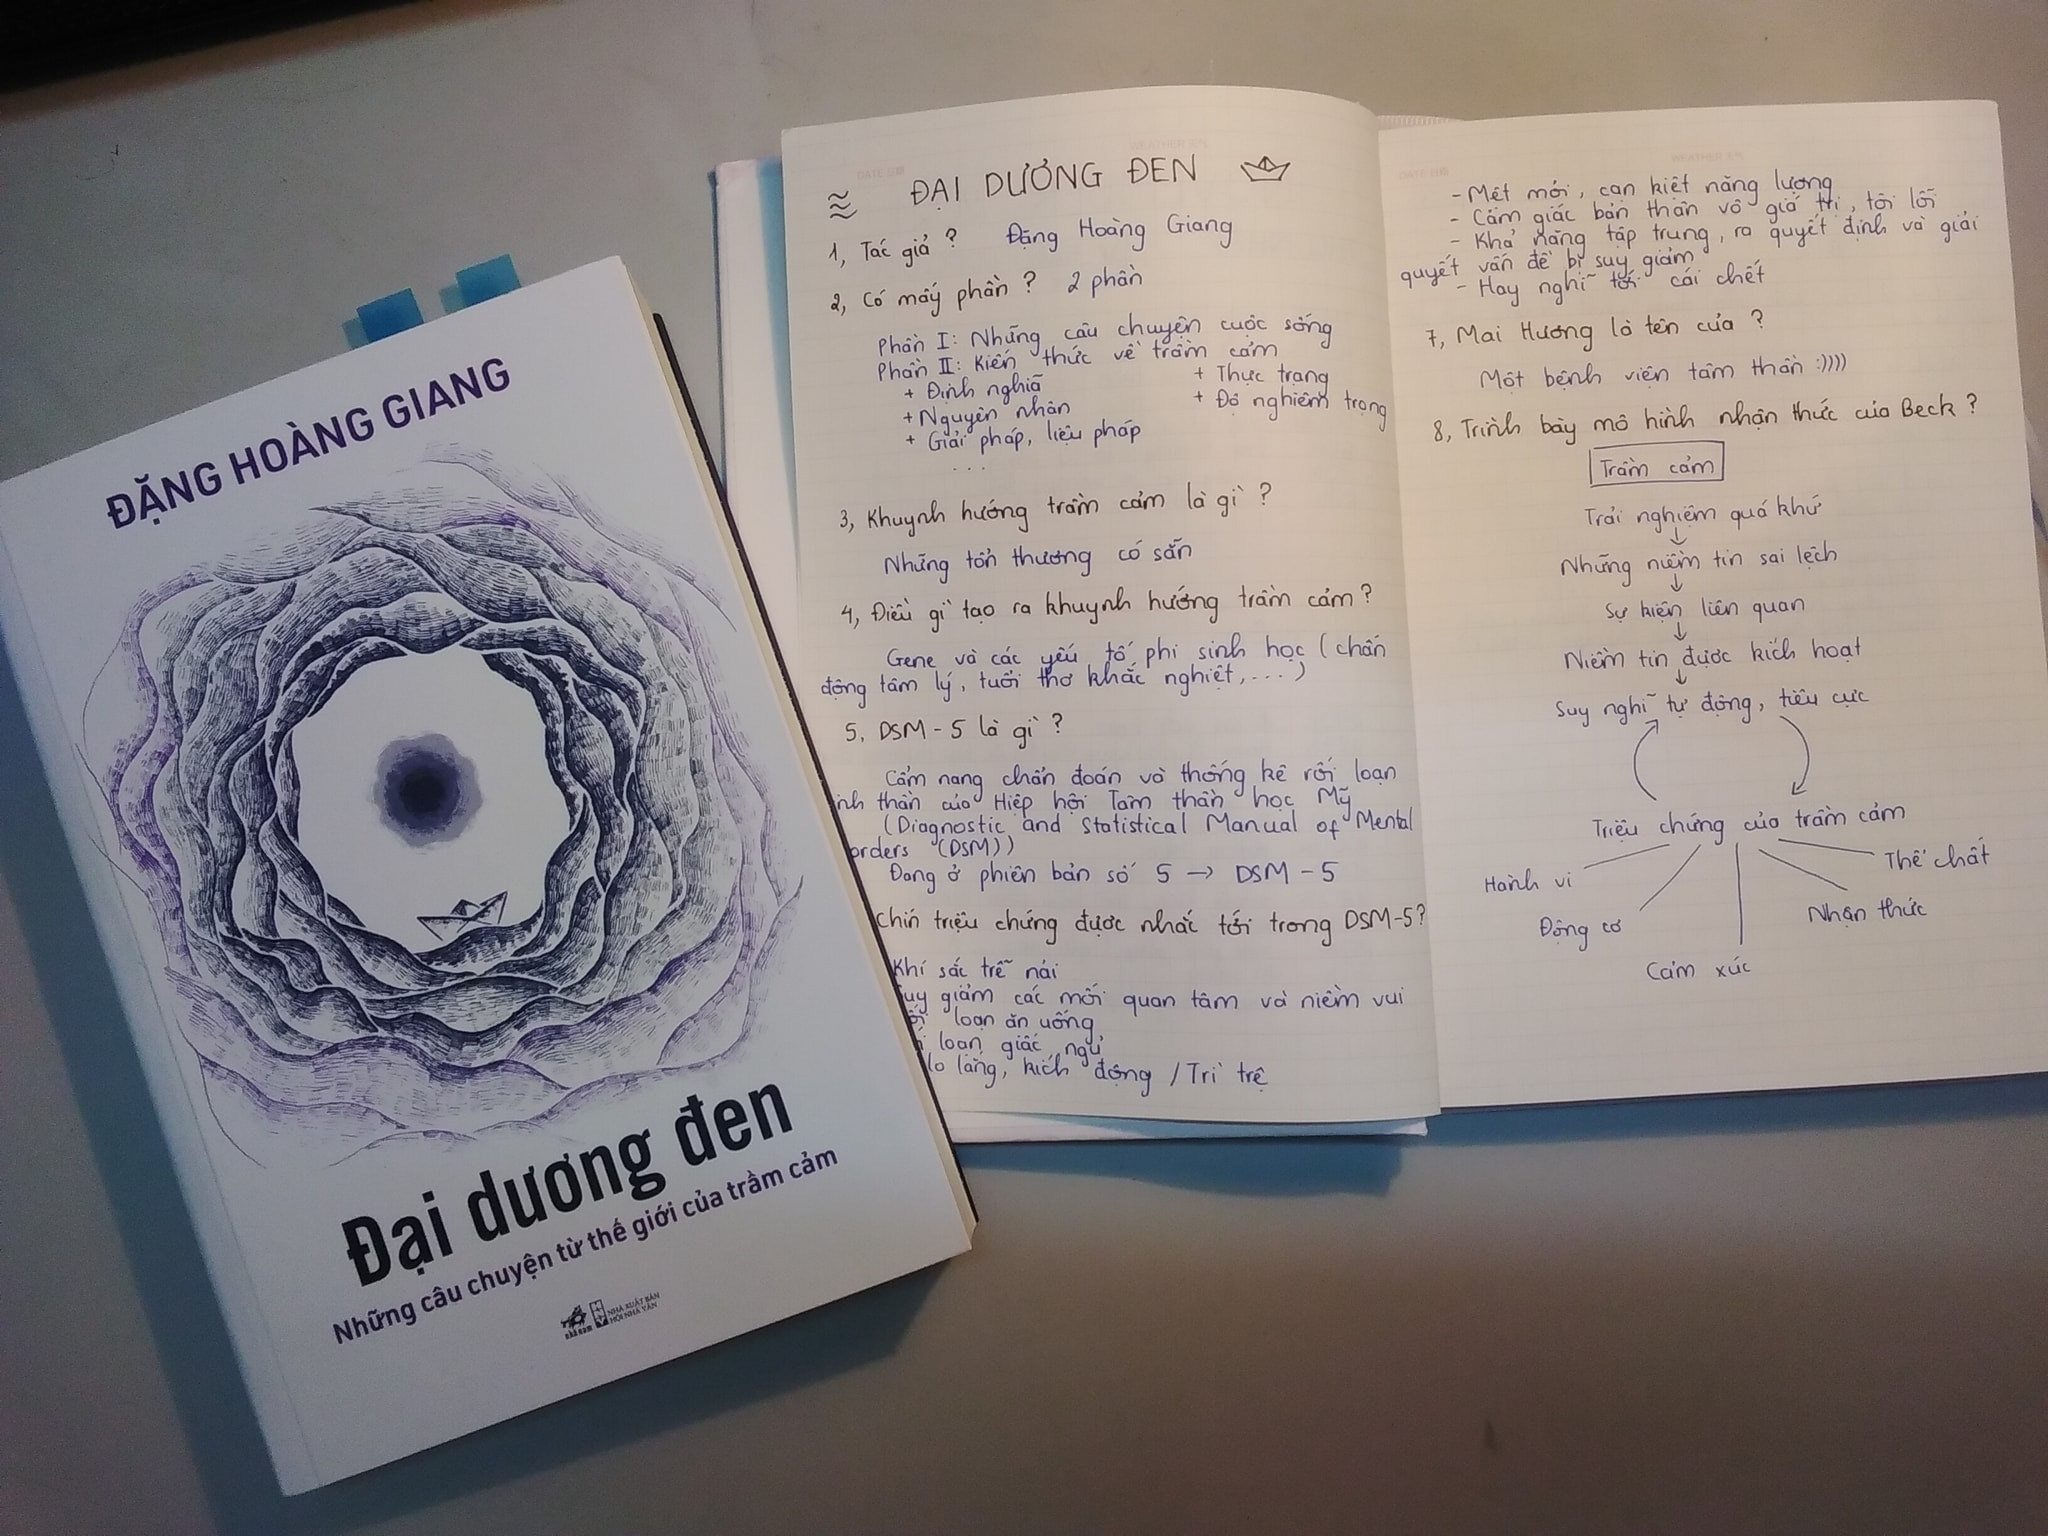 ĐẶNG HOÀNG GIANG
Đại dương đen
Những câu chuyện từ thế giới của trầm cảm
nhã nam
NHÀ XUẤT BẢN
HỘI NHÀ VĂN
ĐẠI DƯƠNG ĐEN
1, Tác giả ? Đặng Hoàng Giang
2, Có mấy phần ? 2 phần
Phần I: Những câu chuyện cuộc sống
Phần II: Kiến thức về trầm cảm
+ Định nghĩa + Thực trạng
+ Nguyên nhân + Độ nghiêm trọng
+ Giải pháp, liệu pháp
...
3, Khuynh hướng trầm cảm là gì ?
Những tổn thương có sẵn
4, Điều gì tạo ra khuynh hướng trầm cảm ?
Gene và các yếu tố phi sinh học ( chấn
động tâm lý, tuổi thơ khắc nghiệt, ... )
5, DSM - 5 là gì ?
Cẩm nang chẩn đoán và thống kê rối loạn
thần của Hiệp hội Tâm thần học Mỹ
(Diagnostic and Statistical Manual of Mental
orders (DSM))
Đang ở phiên bản số 5 → DSM - 5
Chín triệu chứng được nhắc tới trong DSM-5 ?
Khí sắc trễ nải
uy giảm các mối quan tâm và niềm vui
loạn ăn uống
loạn giấc ngủ
lo lắng, kích động / Trì trệ
- Mệt mỏi, cạn kiệt năng lượng
- Cảm giác bản thân vô giá trị, tội lỗi
- Khả năng tập trung, ra quyết định và giải
quyết vấn đề bị suy giảm
- Hay nghĩ tới cái chết
7, Mai Hương là tên của ?
Một bệnh viện tâm thần :))))
8, Trình bày mô hình nhận thức của Beck ?
Trầm cảm
Trải nghiệm quá khứ
↓
Những niềm tin sai lệch
↓
Sự kiện liên quan
↓
Niềm tin được kích hoạt
↓
Suy nghĩ tự động, tiêu cực
Triệu chứng của trầm cảm
Hành vi
Động cơ
Cảm xúc
Nhận thức
Thể chất